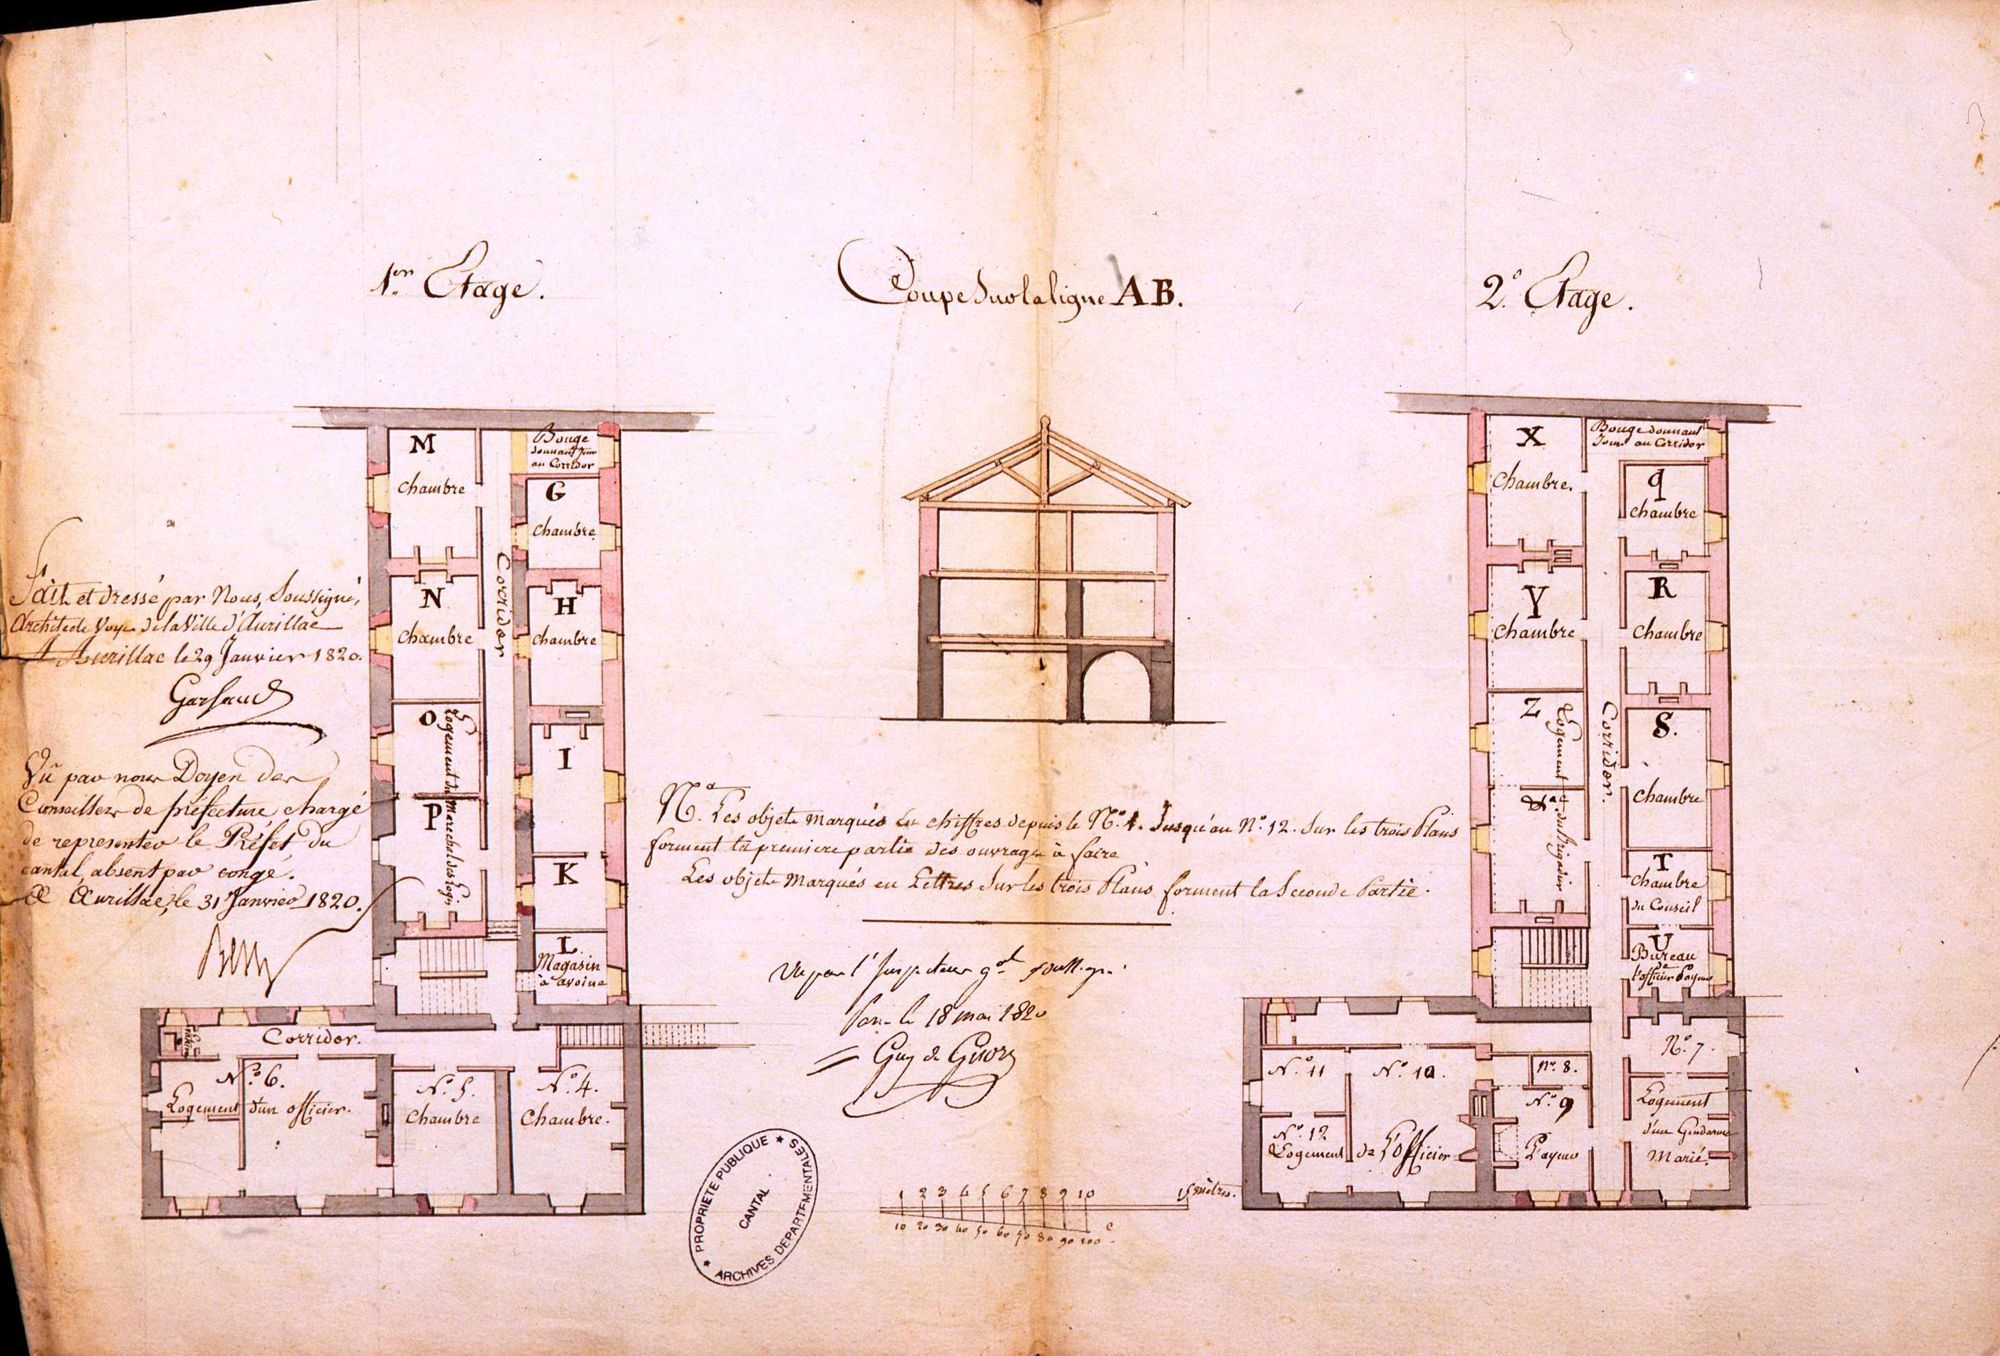 1er Etage.
Coupe Sur la ligne AB.
2e Etage.
M
Chambre
Bouge
donnant Jour
au Corridor
G
Chambre
N
Chambre
Corridor
H
Chambre
O
Logement du Marechal des Logis
P
I
K
L
Magasin
à avoine
Corridor.
N.º 6.
Logement d'un officier.
N.º 5.
Chambre
N.º 4.
Chambre.
Fait et dressé par Nous, Soussigné,
Architecte Voyer de la Ville d'Aurillac
A Aurillac le 29 Janvier 1820.
Vû par nous Doyen des
Conseillers de préfecture chargé
de representer le Préfet du
cantal, absent par congé.
A Aurillac, le 31 Janvier 1820.
Na. Les objets marqués en chiffres depuis le N.º 4. Jusqu'au N.º 12. Sur les trois Plans
forment la premiere partie des ouvrages à faire
Les objets Marqués en Lettres Sur les trois Plans forment la Seconde Partie.
Vu par l'Inspecteur gal soussigné
le 18 mai 1820
PROPRIETE PUBLIQUE
CANTAL
ARCHIVES DEPARTEMENTALES
1 2 3 4 5 6 7 8 9 10 15 mètres.
10 20 30 40 50 60 70 80 90 100 c
X
Chambre.
Bouge donnant
Jour au Corridor
q
Chambre
Y
Chambre
R
Chambre
Z
Logement du Brigadier
&a
Corridor.
S.
Chambre
T
Chambre
du Conseil
U
Bureau
de
l'officier Payeur
N.º 7.
Logement
d'un Gendarme
Marié.
N.º 8.
N.º 9
Payeur
N.º 10
N.º 11
N.º 12
Logement de l'Officier